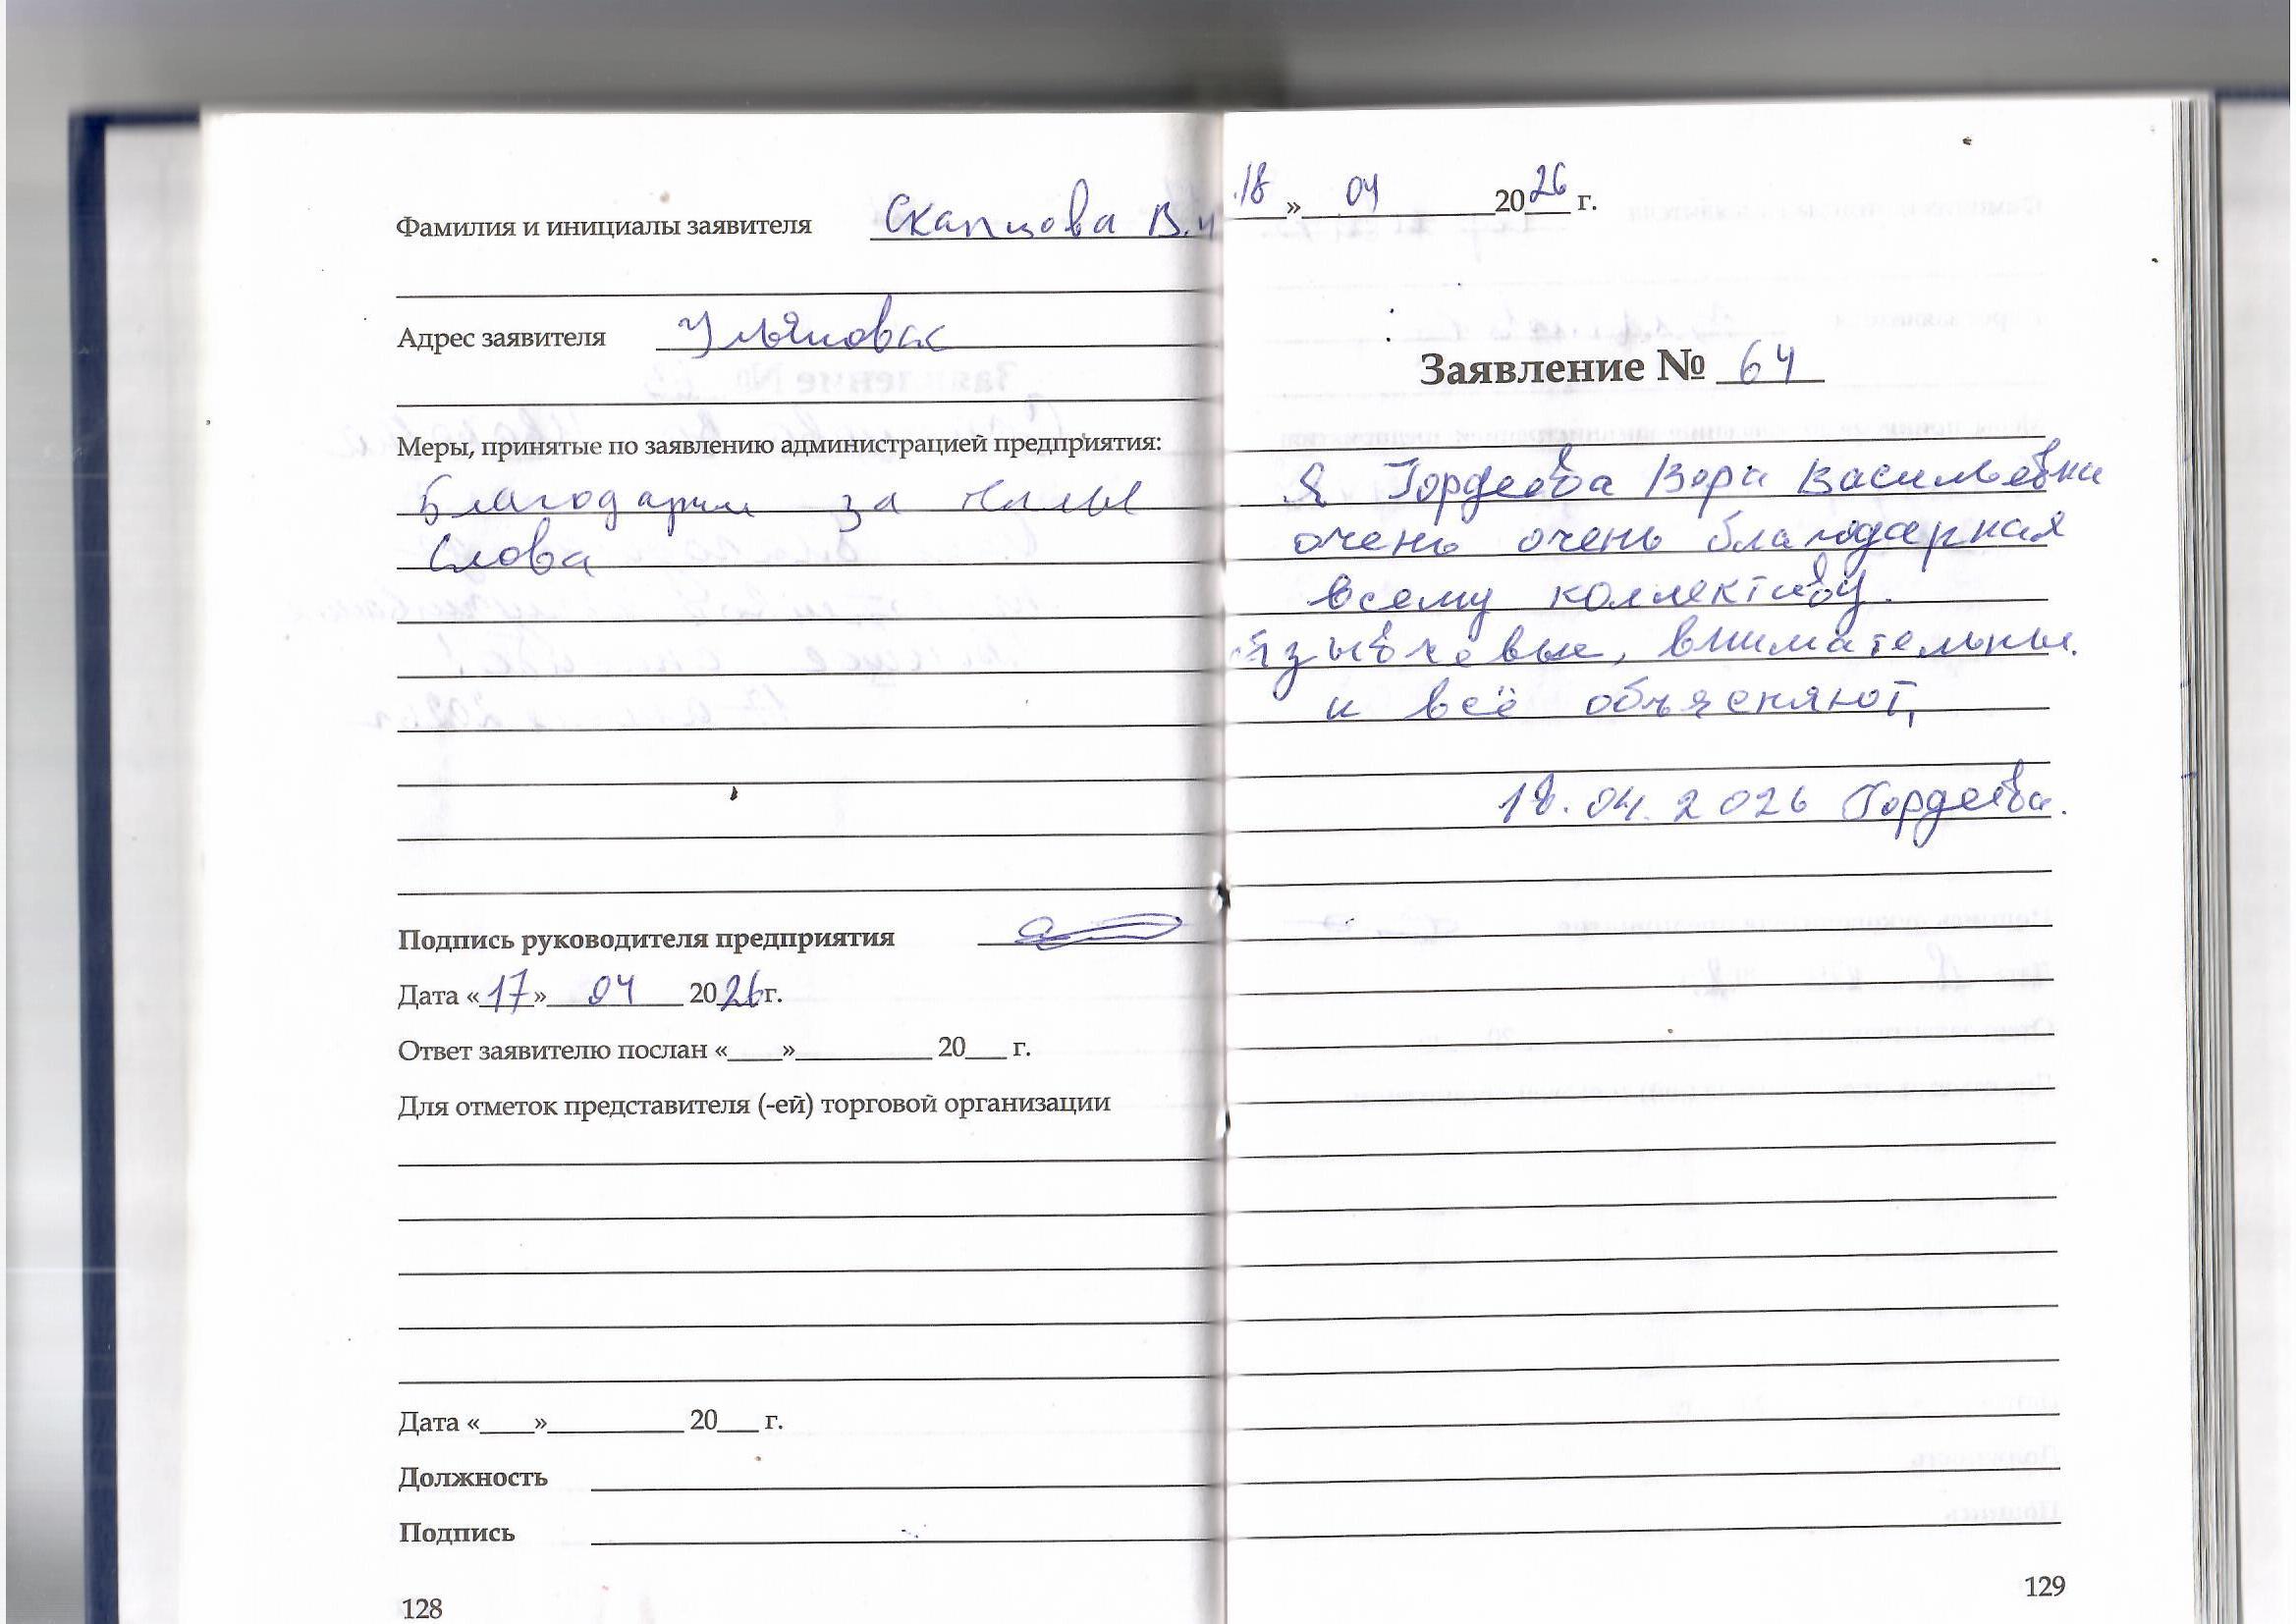 Фамилия и инициалы заявителя Скапцова В.И
Адрес заявителя Ульяновск
Меры, принятые по заявлению администрацией предприятия:
Благодарим за тёплые
слова
Подпись руководителя предприятия
Дата «17» 04 2026 г.
Ответ заявителю послан «____»__________ 20___ г.
Для отметок представителя (-ей) торговой организации
Дата «____»__________ 20___ г.
Должность
Подпись
128
18» 04 2026 г.
Заявление № 64
Я Гордеева Вера Васильевна
очень очень благодарная
всему коллективу.
тзывчевые, внимательны.
и всё объясняют,
18.04.2026 Гордеева.
129